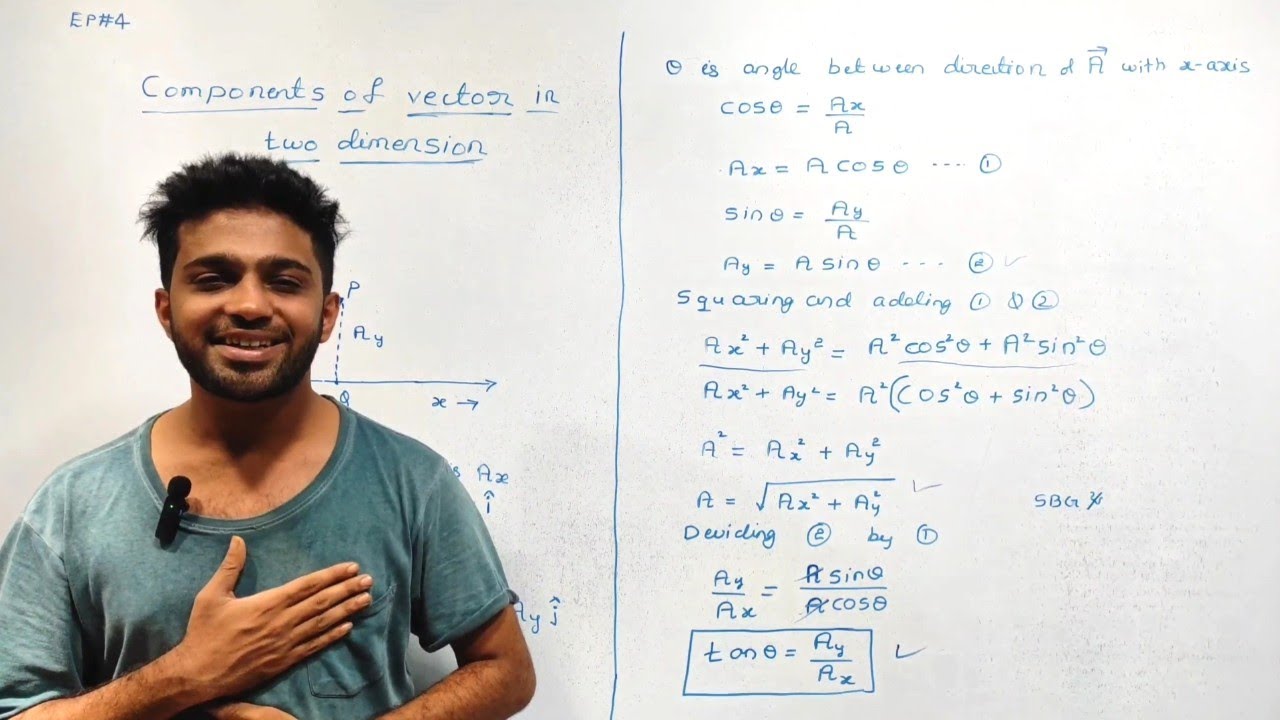 EP#4
Components of vector in
two dimension
P
Ay
Q
x →
Ax
î
Ay ĵ
θ is angle between direction of A⃗ with x-axis
cosθ = Ax/A
Ax = A cosθ ---- ①
sinθ = Ay/A
Ay = A sinθ --- ② ✓
Squaring and adding ① & ②
Ax² + Ay² = A² cos²θ + A² sin²θ
Ax² + Ay² = A²(cos²θ + sin²θ)
A² = Ax² + Ay²
A = √(Ax² + Ay²) ✓
SBG
Deviding ② by ①
Ay/Ax = A sinθ/A cosθ
tanθ = Ay/Ax ✓